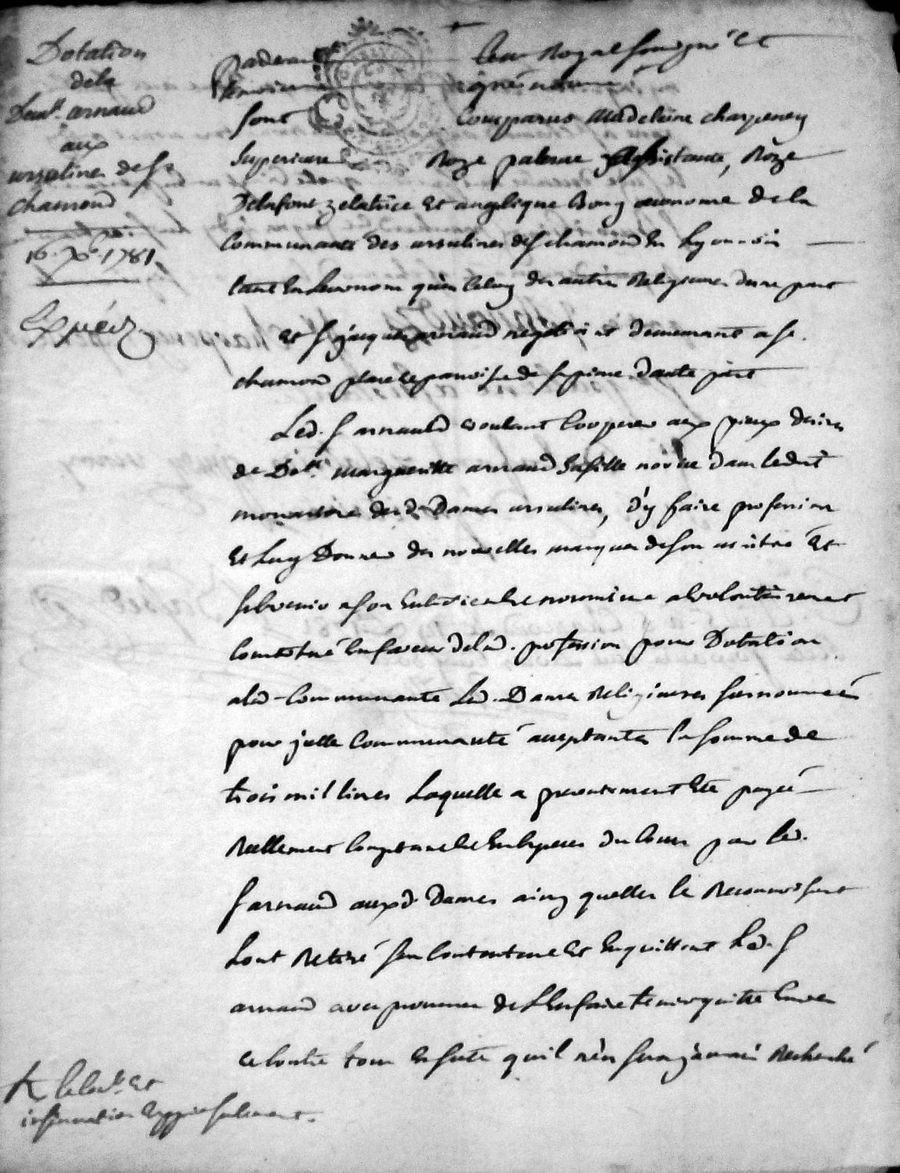 Dotation
dela
Dem.lle arnaud
aux
ursulines de S.t
chamond
16. Xbre 1781
Expédié
pardevant le no.re Royal soussigné et
témoins
sont comparus Madeleine charpeney
superieure Roze palerne assistante, Roze
Delafont zelatrice et angelique Bony œconome de la
communauté des ursulines de S.t chamond En Lyonnois
tant En leur nom qu'en celuy des autres Religieuses d'une part
Et S.r jacques arnaud negotiant demeurant a S.t
chamond place et paroisse de S.t pierre d'autre part
Led. S.r arnaud voulant cooperer aux pieux desirs
de D.lle margueritte arnaud sa fille novice dans ledit
monastere desd. Dames ursulines, d'y faire profession
Et luy Donner des nouvelles marques de son amitié Et
subvenir a son Entretien et nourriture a volontairement
constitué En faveur de lad. profession pour Dotation
a lad. communauté Les d. Dames Religieuses susnommées
pour icelle communauté acceptantes la somme de
trois mil livres Laquelle a presentement été payée
Reellement comptant et En especes du cours par led.
S.r arnaud auxd. Dames ainsy quelles le Reconnoissent
L'ont Retiré s'en contentent et En quittent Led. S.r
arnaud avec promesse de L'En faire tenir quitte Envers
et contre tous En sorte qu'il n'En sera jamais Recherché
insinuation